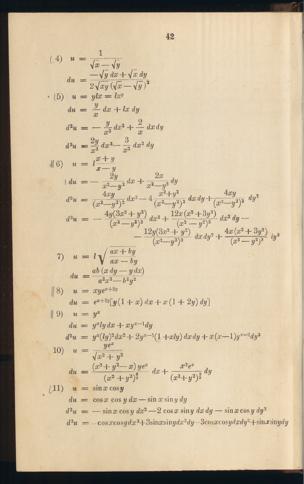 42
(4) u = 1/(√x − √y)
du = (−√y dx + √x dy)/(2√xy (√x − √y)²)
(5) u = ylx = lxʸ
du = y/x dx + lx dy
d²u = − y/x² dx² + 2/x dxdy
d³u = 2y/x³ dx³ − 3/x² dx² dy
(6) u = l (x+y)/(x−y)
du = − 2y/(x²−y²) dx + 2x/(x²−y²) dy
d²u = 4xy/(x²−y²)² dx² − 4 (x²+y²)/(x²−y²)² dx dy + 4xy/(x²−y²)² dy²
d³u = − 4y(3x²+y²)/(x²−y²)³ dx³ + 12x(x²+3y²)/(x²−y²)³ dx² dy −
− 12y(3x²+y²)/(x²−y²)³ dx dy² + 4x(x²+3y²)/(x²−y²)³ dy³
7) u = l √((ax+by)/(ax−by))
du = ab(x dy − y dx)/(a²x²−b²y²)
(8) u = xyeˣ⁺²ʸ
du = eˣ⁺²ʸ[y(1+x) dx + x(1+2y) dy]
(9) u = yˣ
du = yˣly dx + xyˣ⁻¹dy
d²u = yˣ(ly)²dx² + 2yˣ⁻¹(1+xly) dx dy + x(x−1)yˣ⁻²dy²
10) u = yeˣ/√(x²+y²)
du = (x²+y²−x) yeˣ/(x²+y²)^(3/2) dx + x²eˣ/(x²+y²)^(3/2) dy
(11) u = sin x cos y
du = cos x cos y dx − sin x sin y dy
d²u = − sin x cos y dx² − 2 cos x sin y dx dy − sin x cos y dy²
d³u = −cosxcosydx³+3sinxsinydx²dy−3cosxcosydxdy²+sinxsinydy³